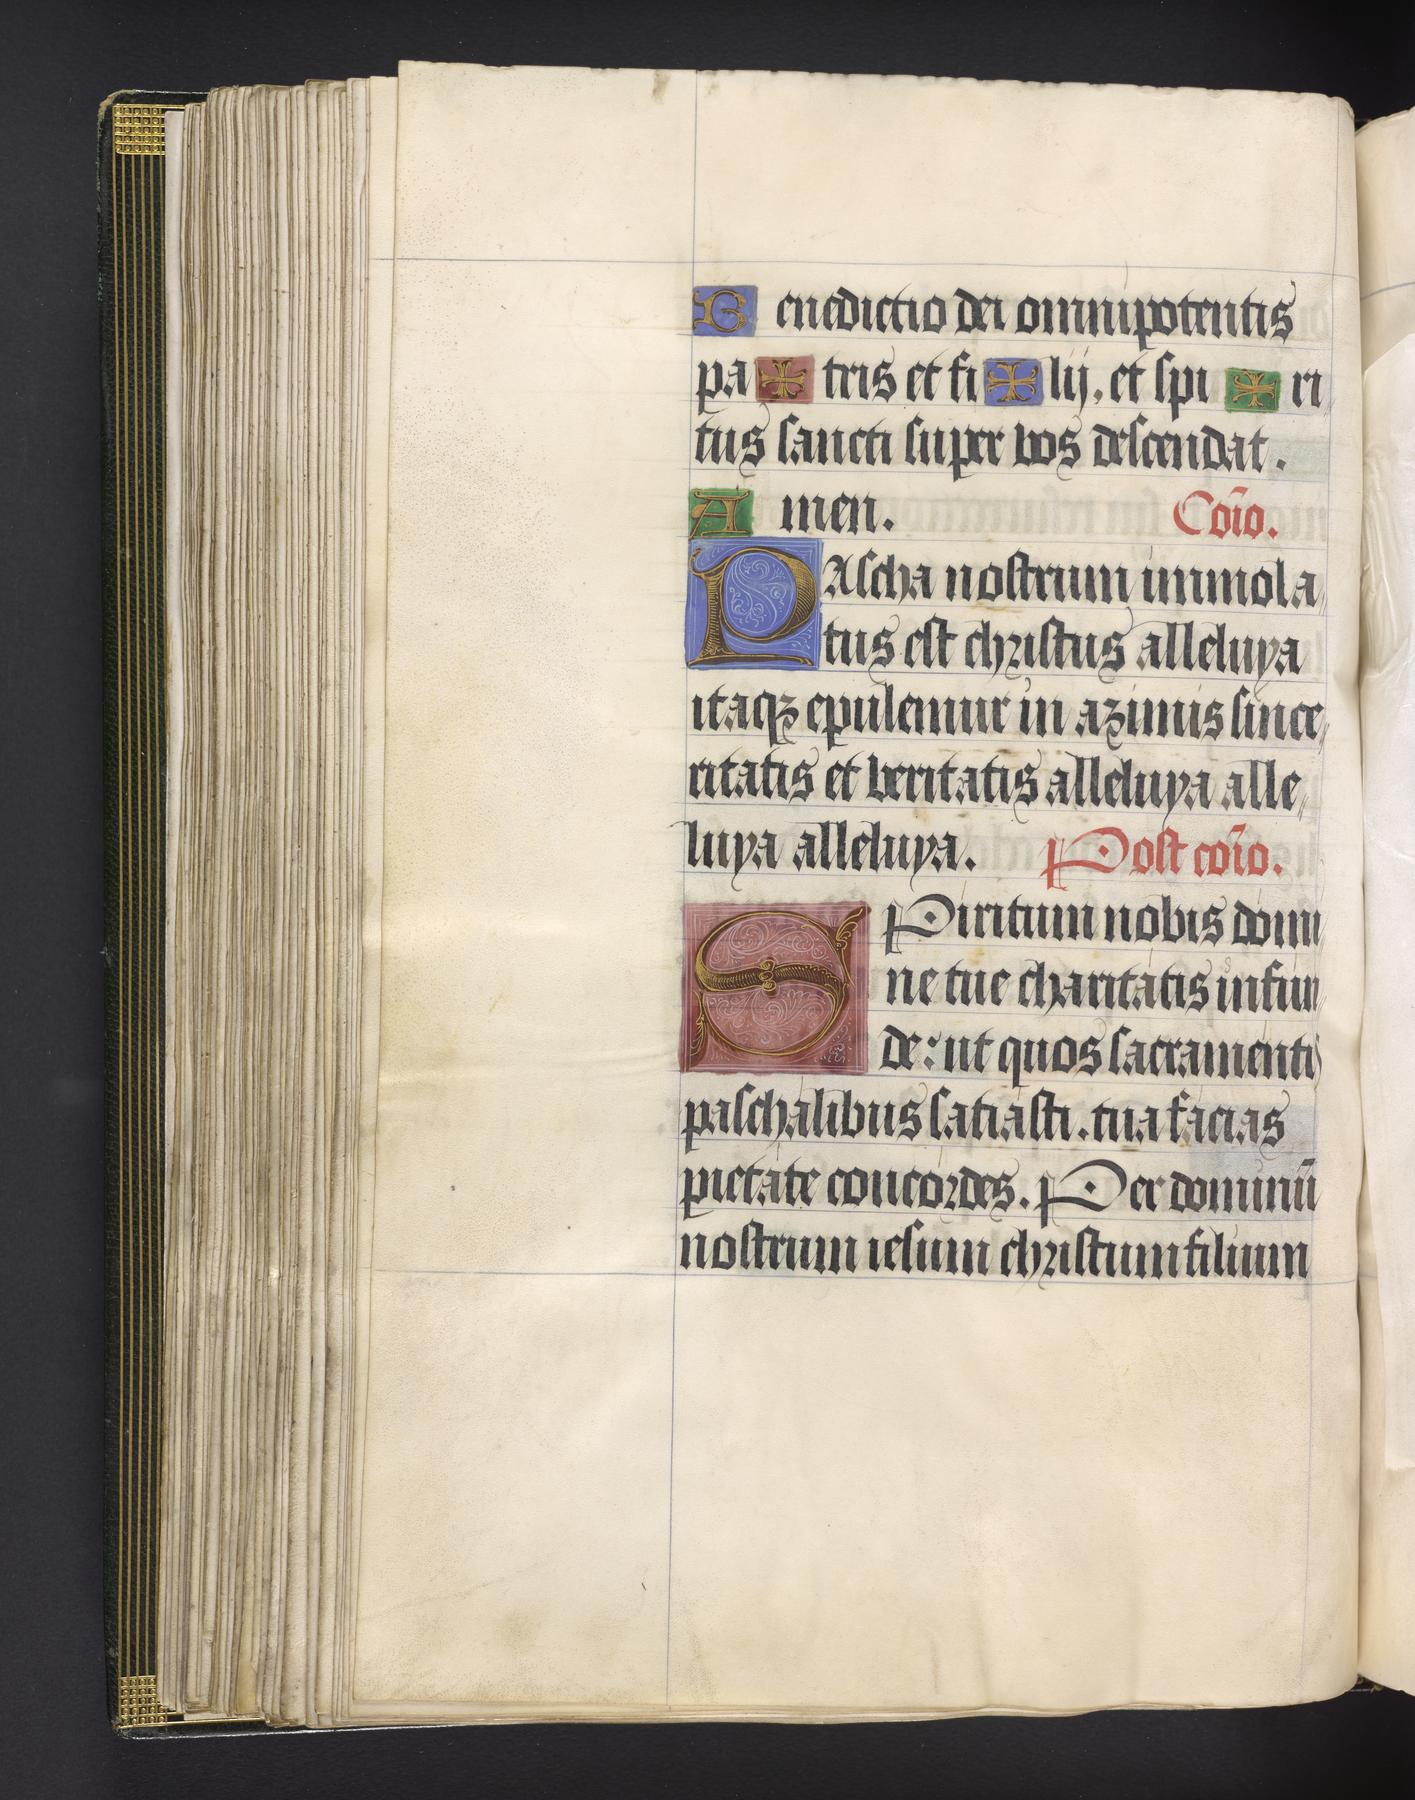 Benedictio dei omnipotentis
pa ✠ tris et fi ✠ lij, et spi ✠ ri
tus sancti super vos descendat.
Amen. Cōio.
PAscha nostrum immola
tus est christus alleluya
itaqꝫ epulemur in azimis since
ritatis et veritatis alleluya alle
luya alleluya. Post cōio.
SPiritum nobis domi
ne tue charitatis infun
de: ut quos sacramentis
paschalibus satiasti. tua facias
pietate concordes. Per dominū
nostrum iesum christum filium